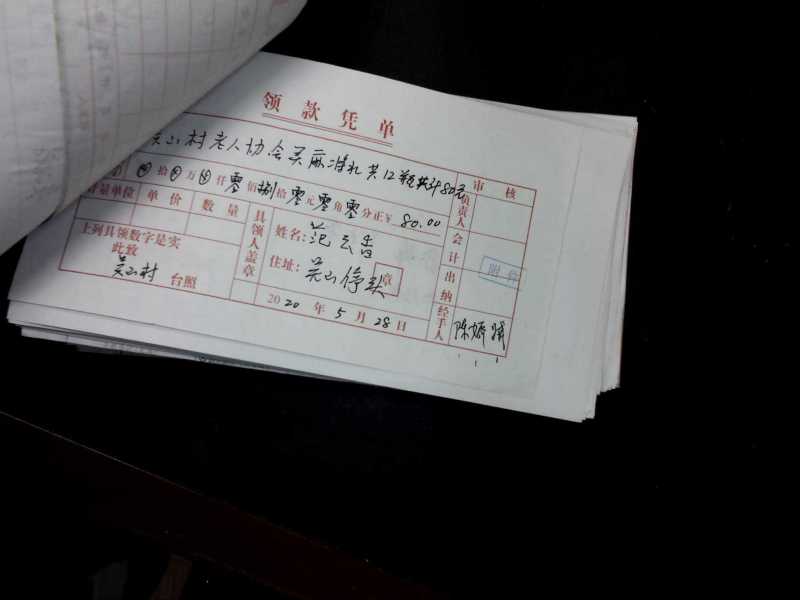 领款凭单
山村老人协会买麻 共12 共计80元
拾 万 仟零佰捌拾零元零角零分正¥ 80.00
计量单位 单价 数量
上列具领数字是实
此致
吴山村 台照
具领人盖章
姓名:范云香
住址:吴山 章
2020年5月28日
审核
负责人
会计
出纳
经手人 陈
附件